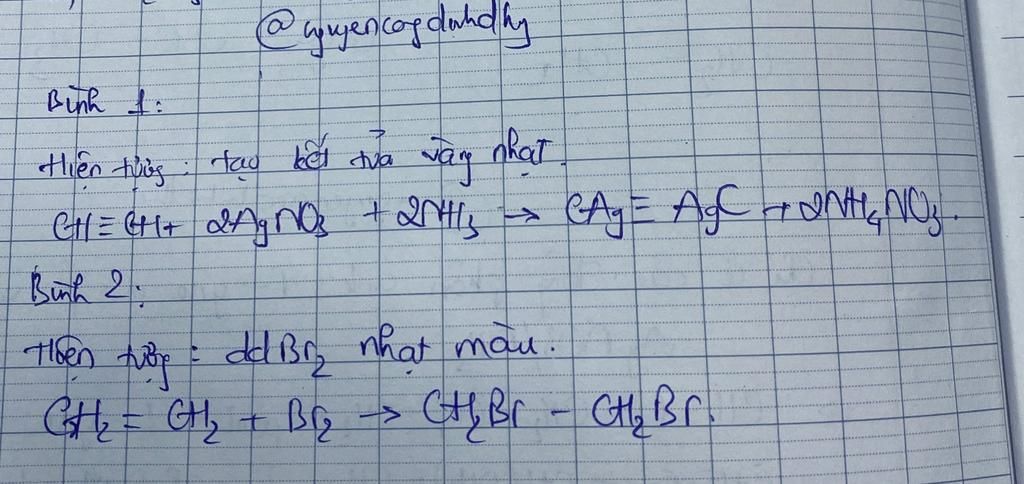 @nguyencogdinhdhy
Bình 1:
Hiện tượng: tạo kết tủa vàng nhạt.
CH≡CH + 2AgNO₃ + 2NH₃ → CAg≡AgC + 2NH₄NO₃.
Bình 2:
Hiện tượng: ddBr₂ nhạt màu.
CH₂=CH₂ + Br₂ → CH₂Br - CH₂Br.